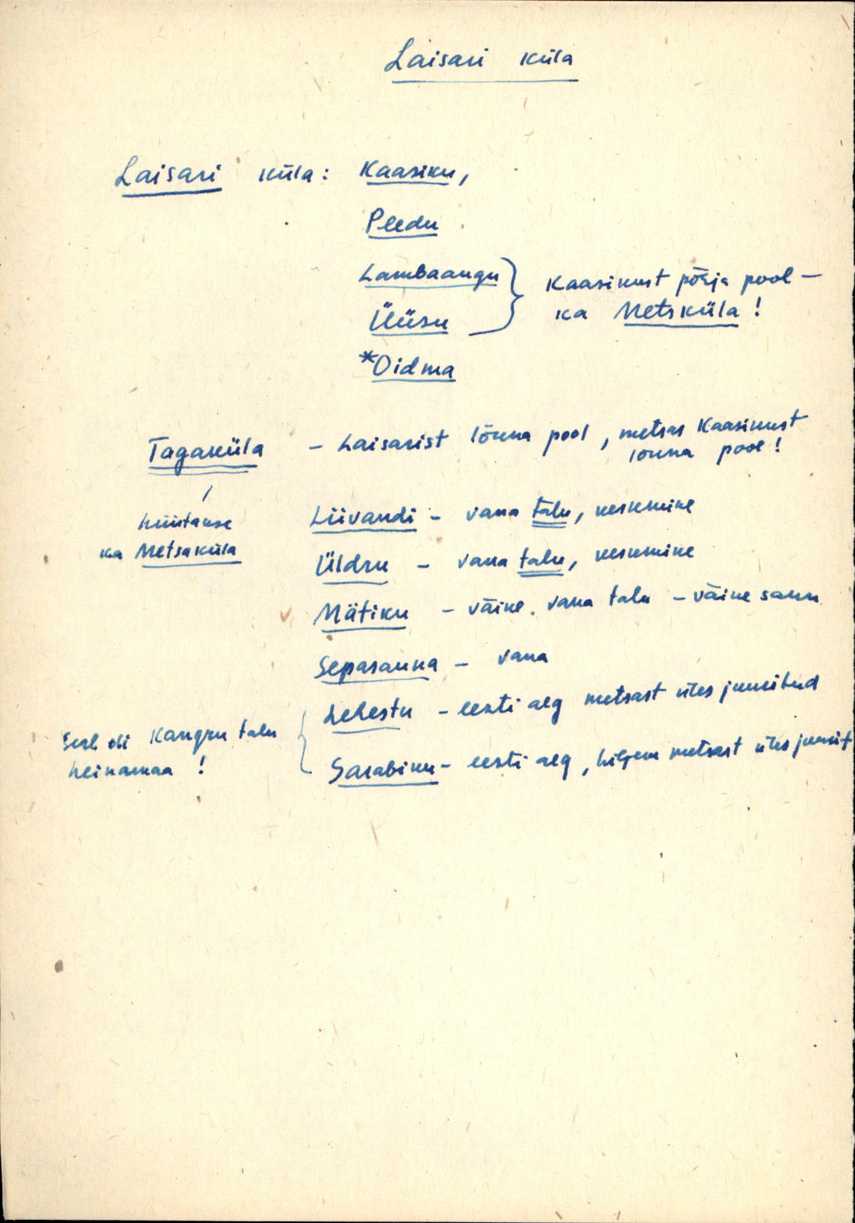 Laisari küla
Laisari küla: Kaasiku,
Peedu
Lambaangu
Üüsu
Kaasikust põhja pool –
ka Metsküla!
*Oidma
Tagaküla – Laisarist lõuna pool, metsas Kaasikust
lõuna pool!
hüütakse
ka Metsaküla
Liivandi – vana talu, keskmine
Üldru – vana talu, keskmine
Mätiku – väike, vana talu – väike saun
Sepasauna – vana
Lehestu – eesti aeg metsast üles juuritud
Seal oli Kangru talu
heinamaa!
Sarabiku – eesti aeg, hiljem metsast üles juurit